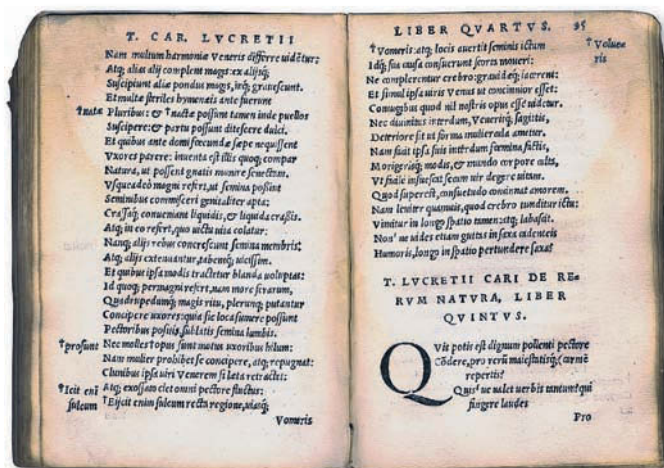 T. CAR. LVCRETII
Nam multum harmoniæ Veneris differre uidẽtur:
Atq; alias alij complent magis: ex alijsq;
Suscipiunt aliæ pondus magis, inq; grauescunt.
Et multæ steriles hymenæis ante fuerunt
†natæ
Pluribus: & †nactæ possunt tamen inde puellos
Suscipere: & partu possunt ditescere dulci.
Et quibus ante domi fœcundæ sæpe nequissent
Vxores parere: inuenta est illis quoq; compar
Natura, ut possent gnatis munire senectam.
Vsqueadeò magni refert, ut semina possint
Seminibus commisceri genitaliter apta;
Crassaq; conueniant liquidis, & liquida crassis.
Atq; in eo refert, quo uictu uita colatur:
Nanq; alijs rebus concrescunt semina membris;
Atq; alijs extenuantur, tabentq; uicissim.
Et quibus ipsa modis tractetur blanda uoluptas:
Id quoq; permagni refert, nam more ferarum,
Quadrupedumq; magis ritu, plerunq; putantur
Concipere uxores: quia sic loca sumere possunt
Pectoribus positis, sublatis semina lumbis.
†prosunt
Nec molles †opus sunt motus uxoribus hilum:
Nam mulier prohibet se concipere, atq; repugnat:
Clunibus ipsa uiri Venerem si læta retractet:
Atq; exossato ciet omni pectore fluctus:
†Icit enĩ
sulcum
†Eijcit enim sulcum recta regione, uiaq;
Vomeris
LIBER QVARTVS. 95
†Vomeris: atq; locis auertit seminis ictum
†Volue
ris
Idq; sua causa consuerunt scorta moueri:
Ne complerentur crebro: grauidæq; iacerent:
Et simul ipsa uiris Venus ut concinnior esset:
Coniugibus quod nil nostris opus esse uidetur.
Nec diuinitus interdum, Venerisq; sagittis,
Deteriore fit ut forma muliercula ametur.
Nam facit ipsa suis interdum fœmina factis,
Morigerisq; modis, & mundo corpore cultu,
Vt facile insuescat secum uir degere uitam.
Quod superest, consuetudo concinnat amorem.
Nam leuiter quamuis, quod crebro tunditur ictu:
Vincitur in longo spatio tamen: atq; labascit.
Non'ne uides etiam guttas in saxa cadenteis
Humoris, longo in spatio pertundere saxa?
T. LVCRETII CARI DE RE-
RVM NATVRA, LIBER
QVINTVS.
Qvis potis est dignum pollenti pectore
Cõdere, pro rerũ maiestatisq; (carmẽ
repertis?
Quis'ue ualet uerbis tantum: qui
fingere laudes
Pro